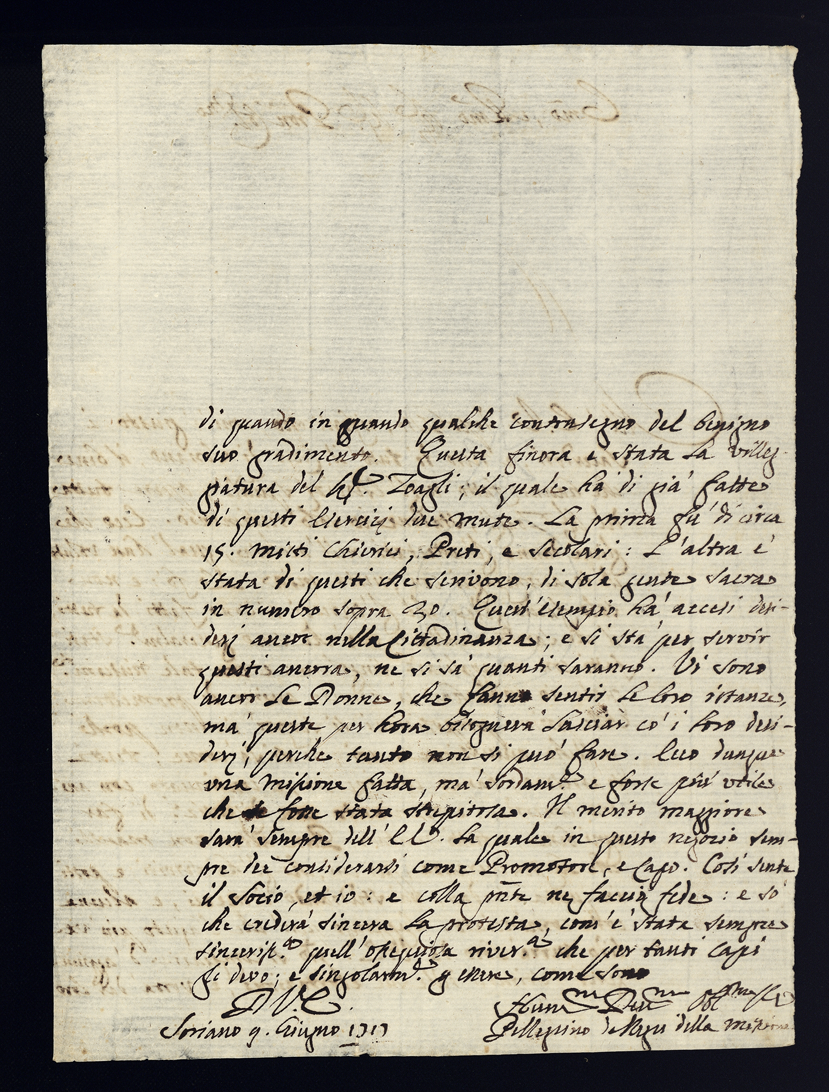 di quando in quando qualche contrasegno del benigno
suo gradimento. Questa finora è stata la villeg-
giatura del Sig.r Zoagli, il quale ha di già fatte
di questi Esercizj due mute. La prima fù di circa
15. misti Chierici, Preti, e secolari: L'altra è
stata di questi che scrivono, di sola gente sacra
in numero sopra 20. Quest'esempio ha accesi desi-
derj ancor nella Cittadinanza; e si stà per servir
questi ancora, ne si sà quanti saranno. Vi sono
ancor le Donne, che fanno sentir le loro istanze,
mà queste per hora bisognerà lasciar cò i loro desi-
derj, perche tanto non si può fare. Ecco dunque
una missione fatta, mà sordam.te e forse più utile
che se fosse stata strepitosa. Il merito maggiore
sarà sempre dell'E.V. la quale in questo negozio sem-
pre dee considerarsi come Promotore, e Capo. Così sente
il socio, et io: e colla pñte ne faccio fede: e sò
che crederà sincera la protesta, com'è stata sempre
sinceriss.a quell'ossequiosa river.a che per tanti capi
le devo; e singolarm.te per essere, come sono
D. V. E.
Hum.mo Dev.mo Obl.mo
Soriano 9. Giugno 1717
Pellegrino de Negri della missione